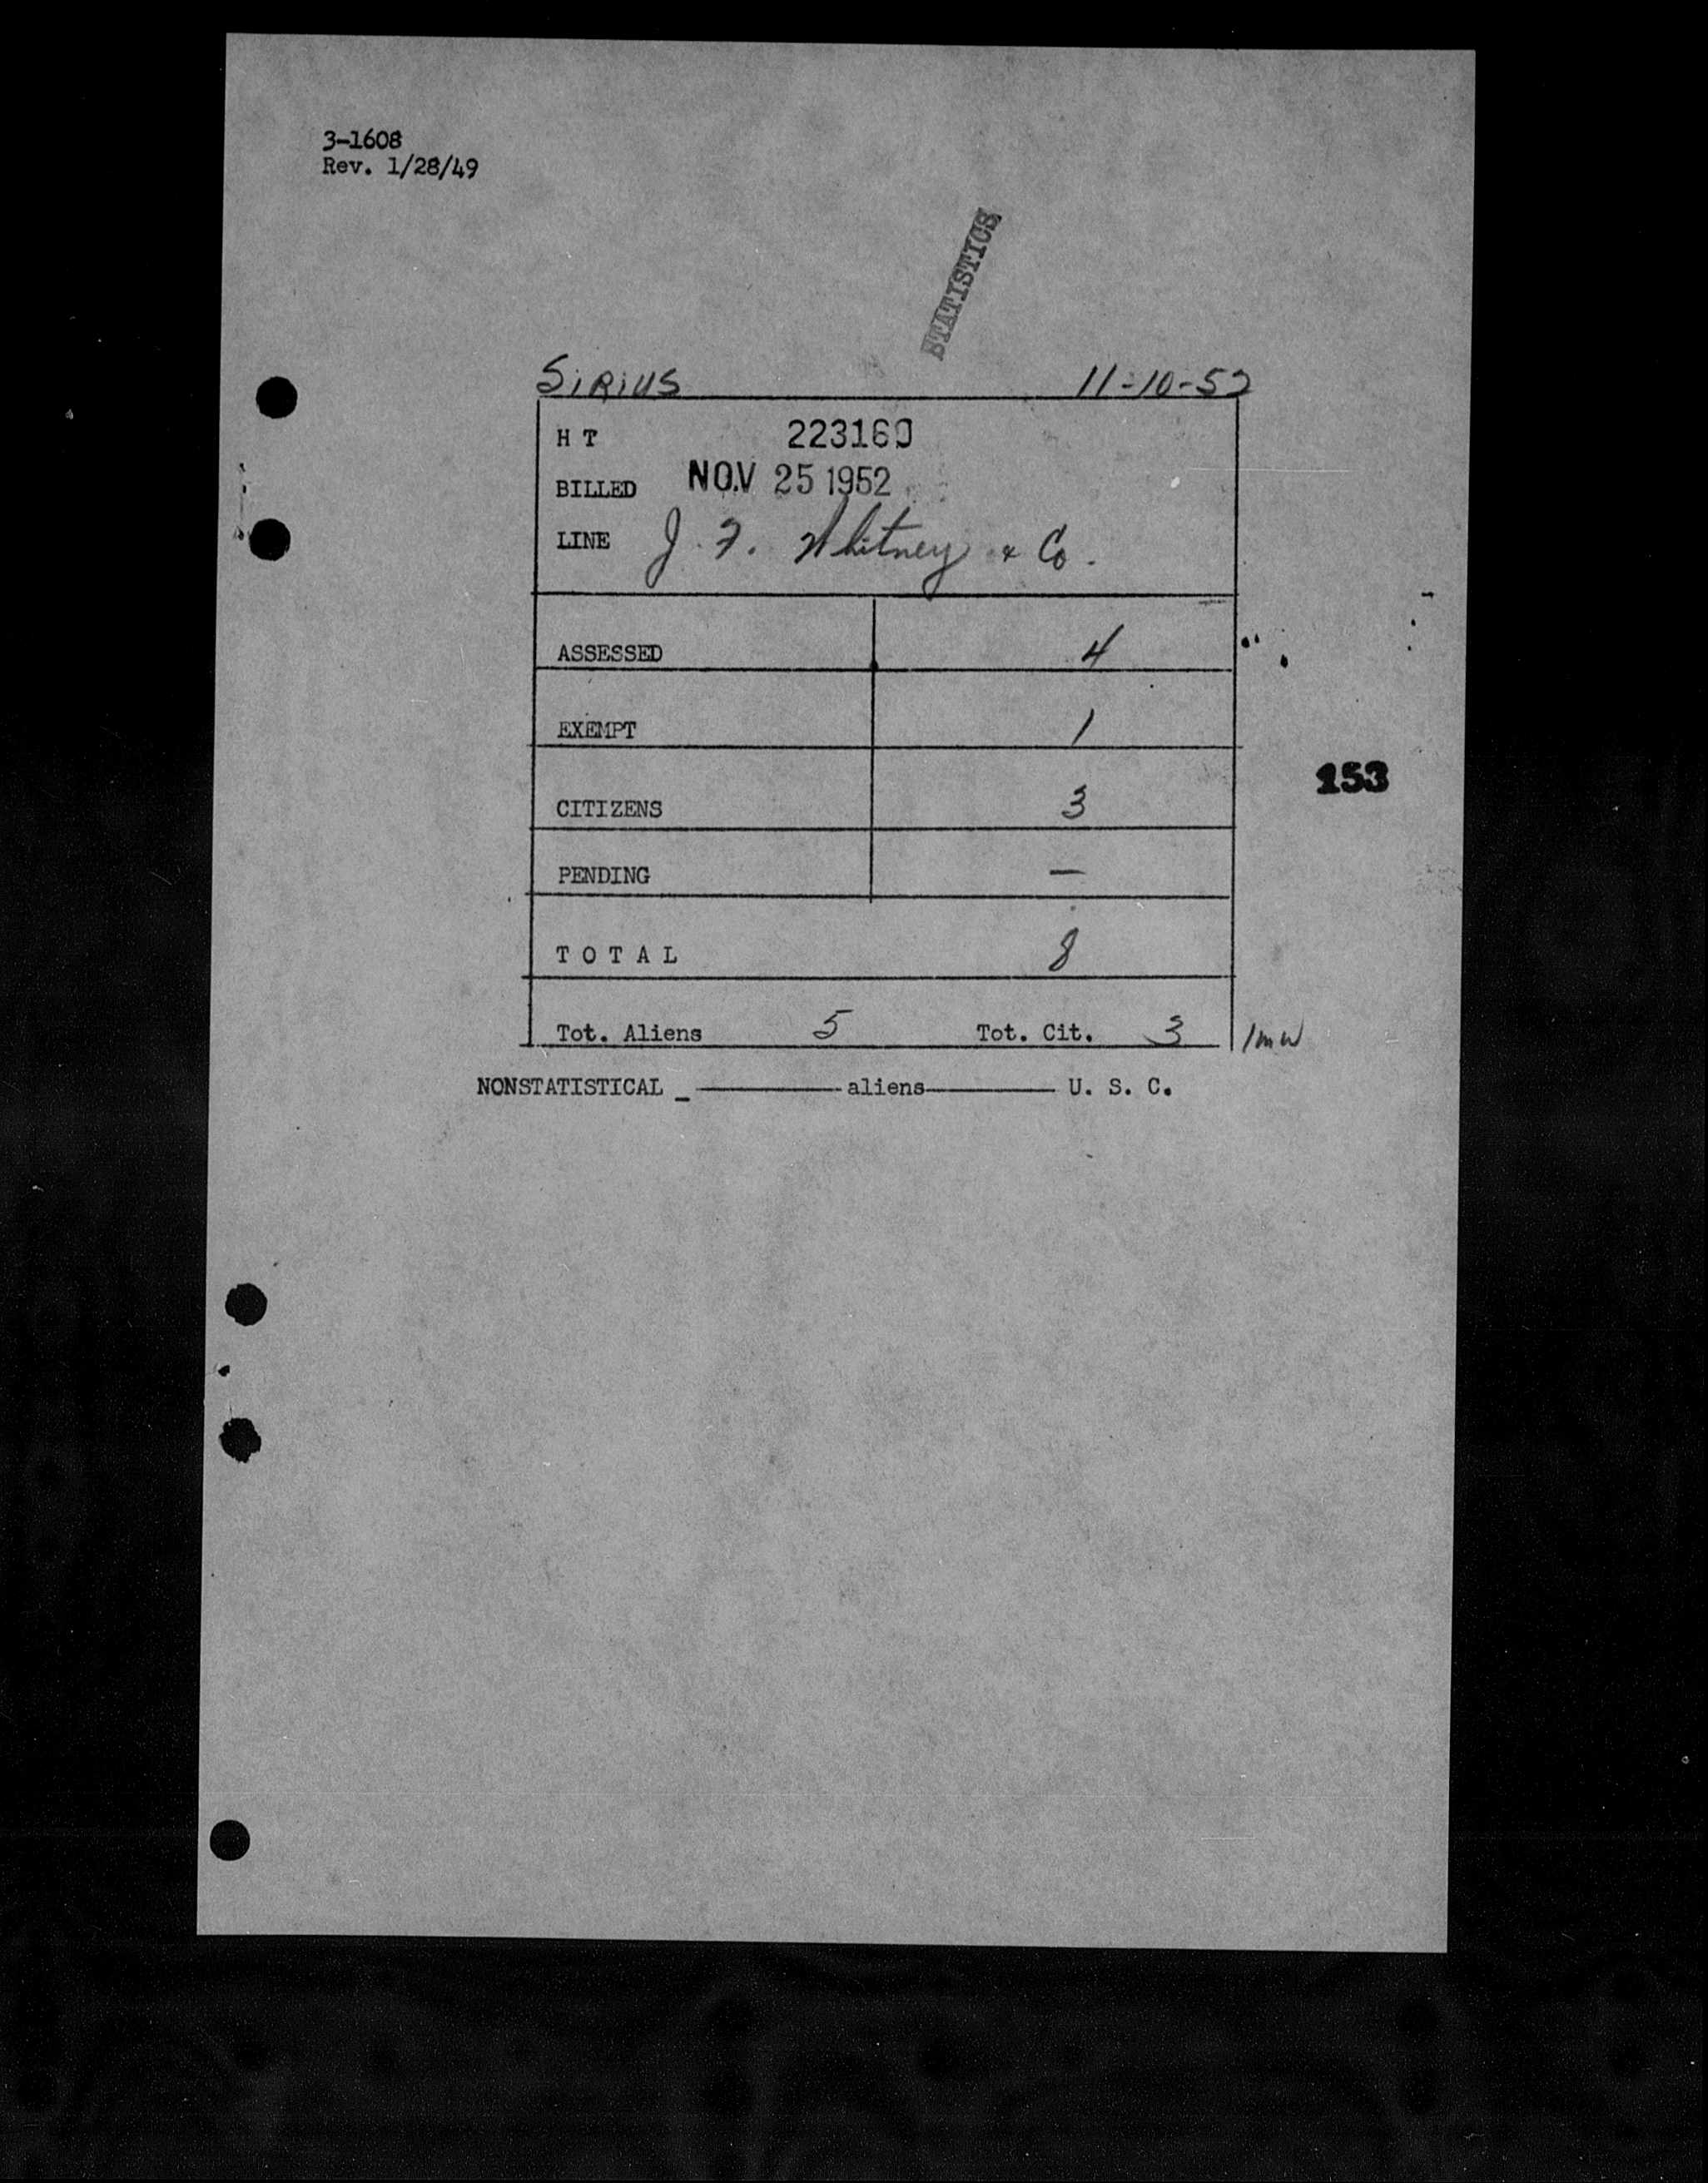 3-1608
Rev. 1/28/49
STATISTICS
SIRIUS 11-10-52
H T 223160
BILLED NOV 25 1952
LINE J. F. Whitney & Co.
ASSESSED 4
EXEMPT 1
153
CITIZENS 3
PENDING —
T O T A L 8
Tot. Aliens 5 Tot. Cit. 3
NONSTATISTICAL _ ————— aliens ————— U. S. C.